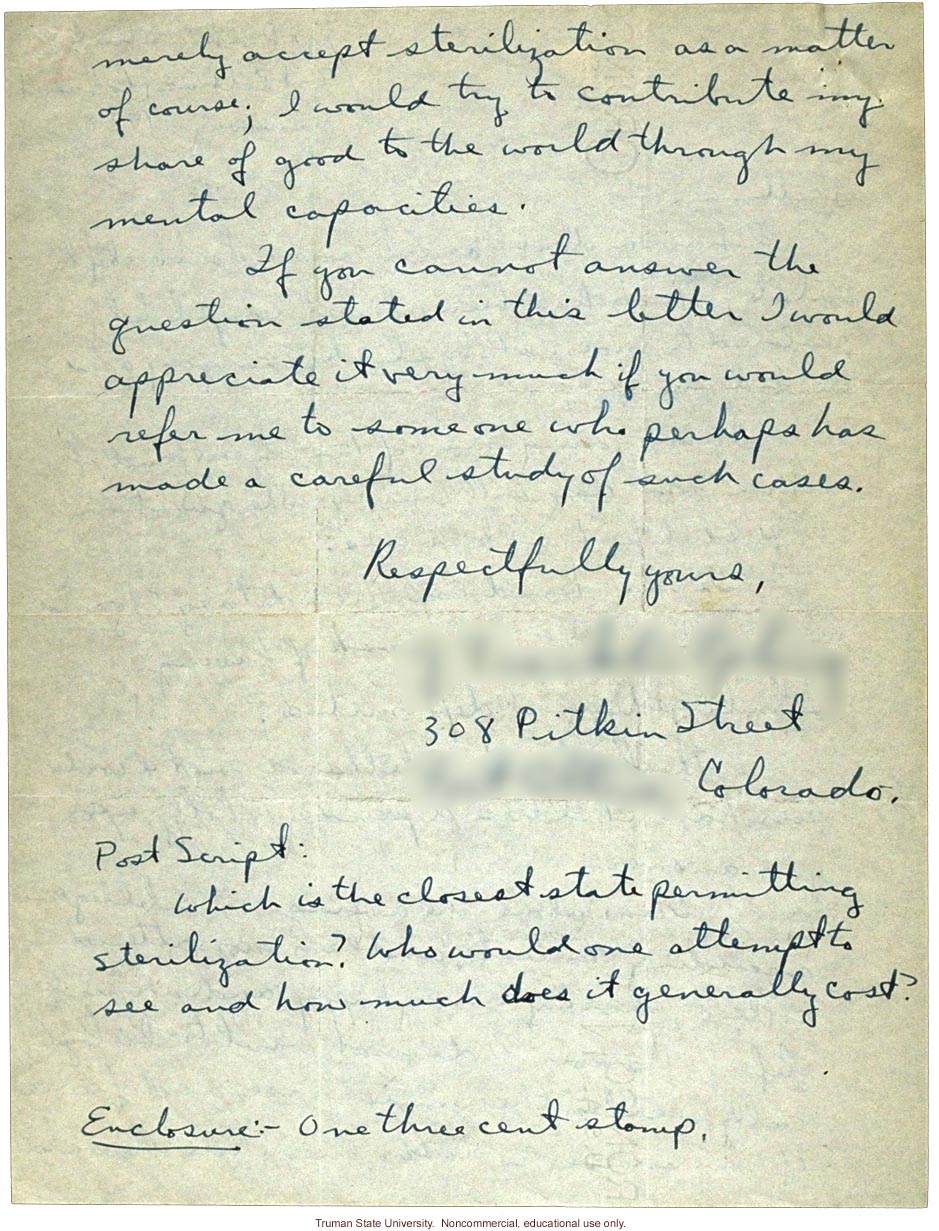 merely accept sterilization as a matter
of course; I would try to contribute my
share of good to the world through my
mental capacities.
If you cannot answer the
question stated in this letter I would
appreciate it very much if you would
refer me to someone who perhaps has
made a careful study of such cases.
Respectfully yours,
308 Pitkin Street
Colorado.
Post Script:
Which is the closest state permitting
sterilization? Who would one attempt to
see and how much does it generally cost?
Enclosure:- One three cent stamp.
Truman State University. Noncommercial, educational use only.